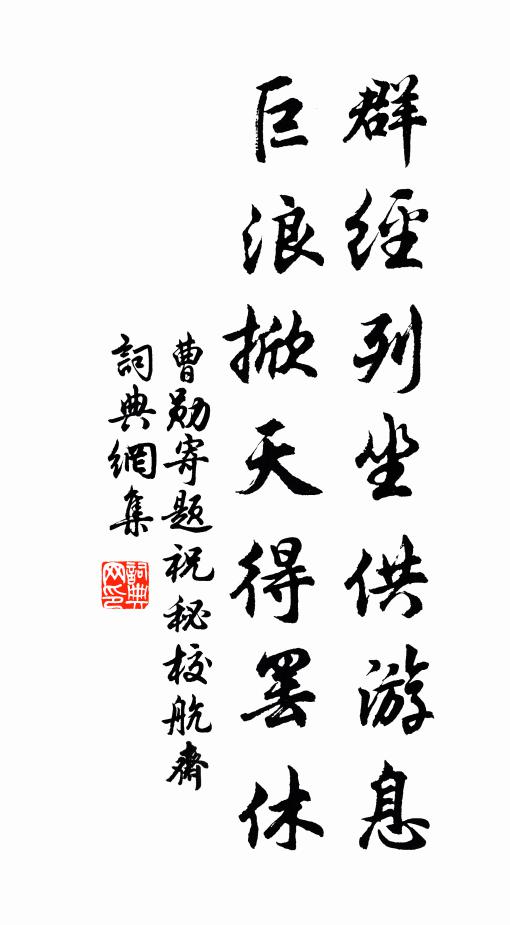 群經列坐供游息
巨浪掀天得罷休
曹勛寄題祝秘校航齋
詞典網集
詞典网印